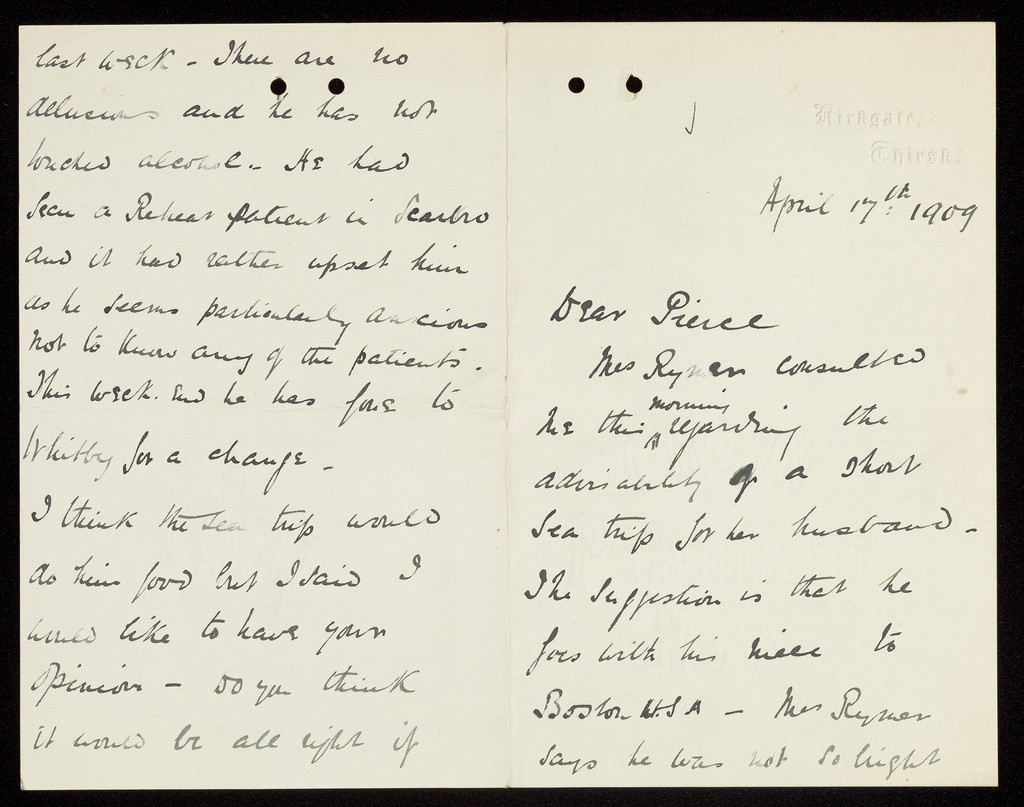 Kirkgate,
Thirsk.
April 17th: 1909
Dear Pierce
Mrs Rymer consulted
me this morning regarding the
advisability of a short
sea trip for her husband -
The suggestion is that he
goes with his niece to
Boston U.S.A - Mrs Rymer
says he was not so bright
last week - There are no
delusions and he has not
touched alcohol - He had
seen a Retreat patient in Scarbro
and it had rather upset him
as he seems particularly anxious
not to know any of the patients.
This week-end he has gone to
Whitby for a change -
I think the sea trip would
do him good but I said I
would like to have your
opinion - Do you think
it would be all right if